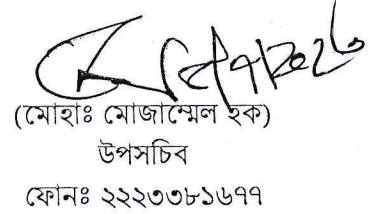 (মোহাঃ মোজাম্মেল হক)
উপসচিব
ফোনঃ ২২২৩৩৮১৬৭৭